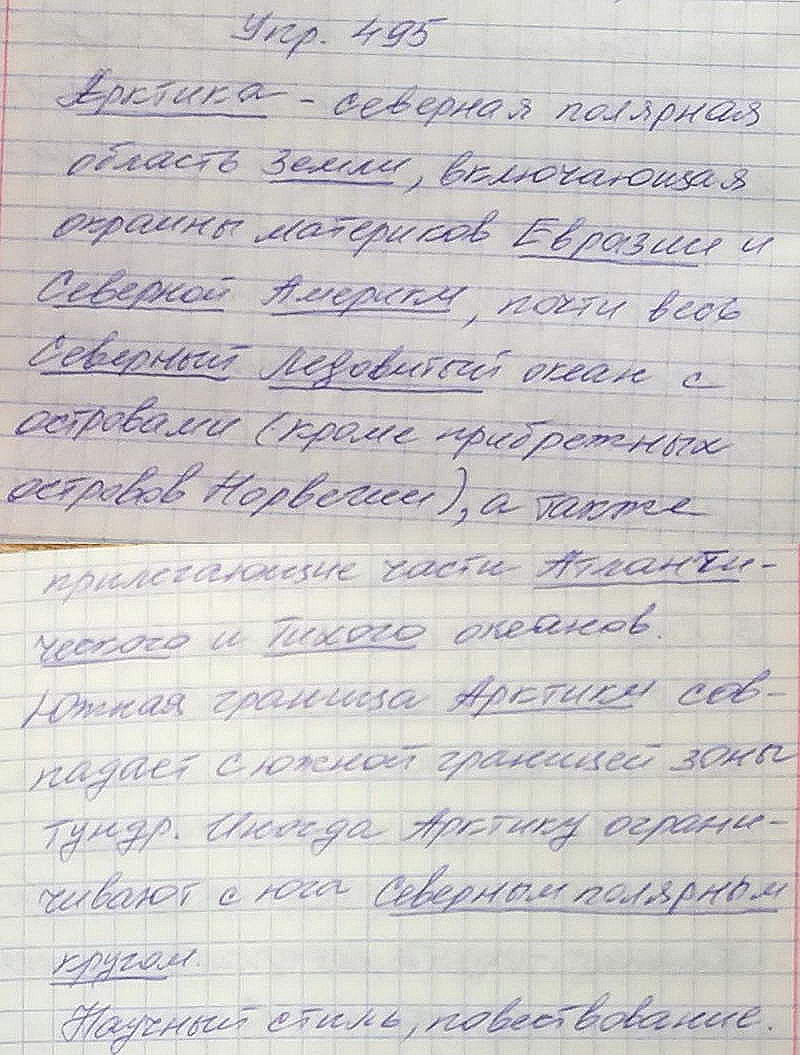 Упр. 495
Арктика - северная полярная
область Земли, включающая
окраины материков Евразии и
Северной Америки, почти весь
Северный Ледовитый океан с
островами (кроме прибрежных
островов Норвегии), а также
прилегающие части Атланти-
ческого и Тихого океанов.
Южная граница Арктики сов-
падает с южной границей зоны
тундр. Иногда Арктику ограни-
чивают с юга Северным полярным
кругом.
Научный стиль, повествование.